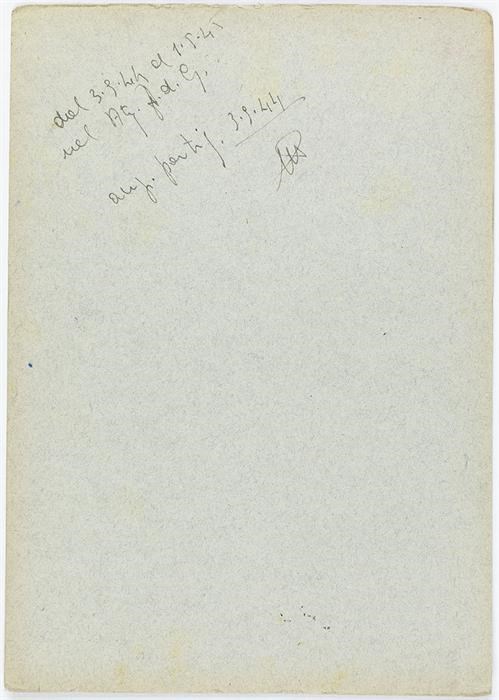 dal 3.9.44 al 1.5.45
nel Ag. F.d.G.
anz. partig. 3.9.44